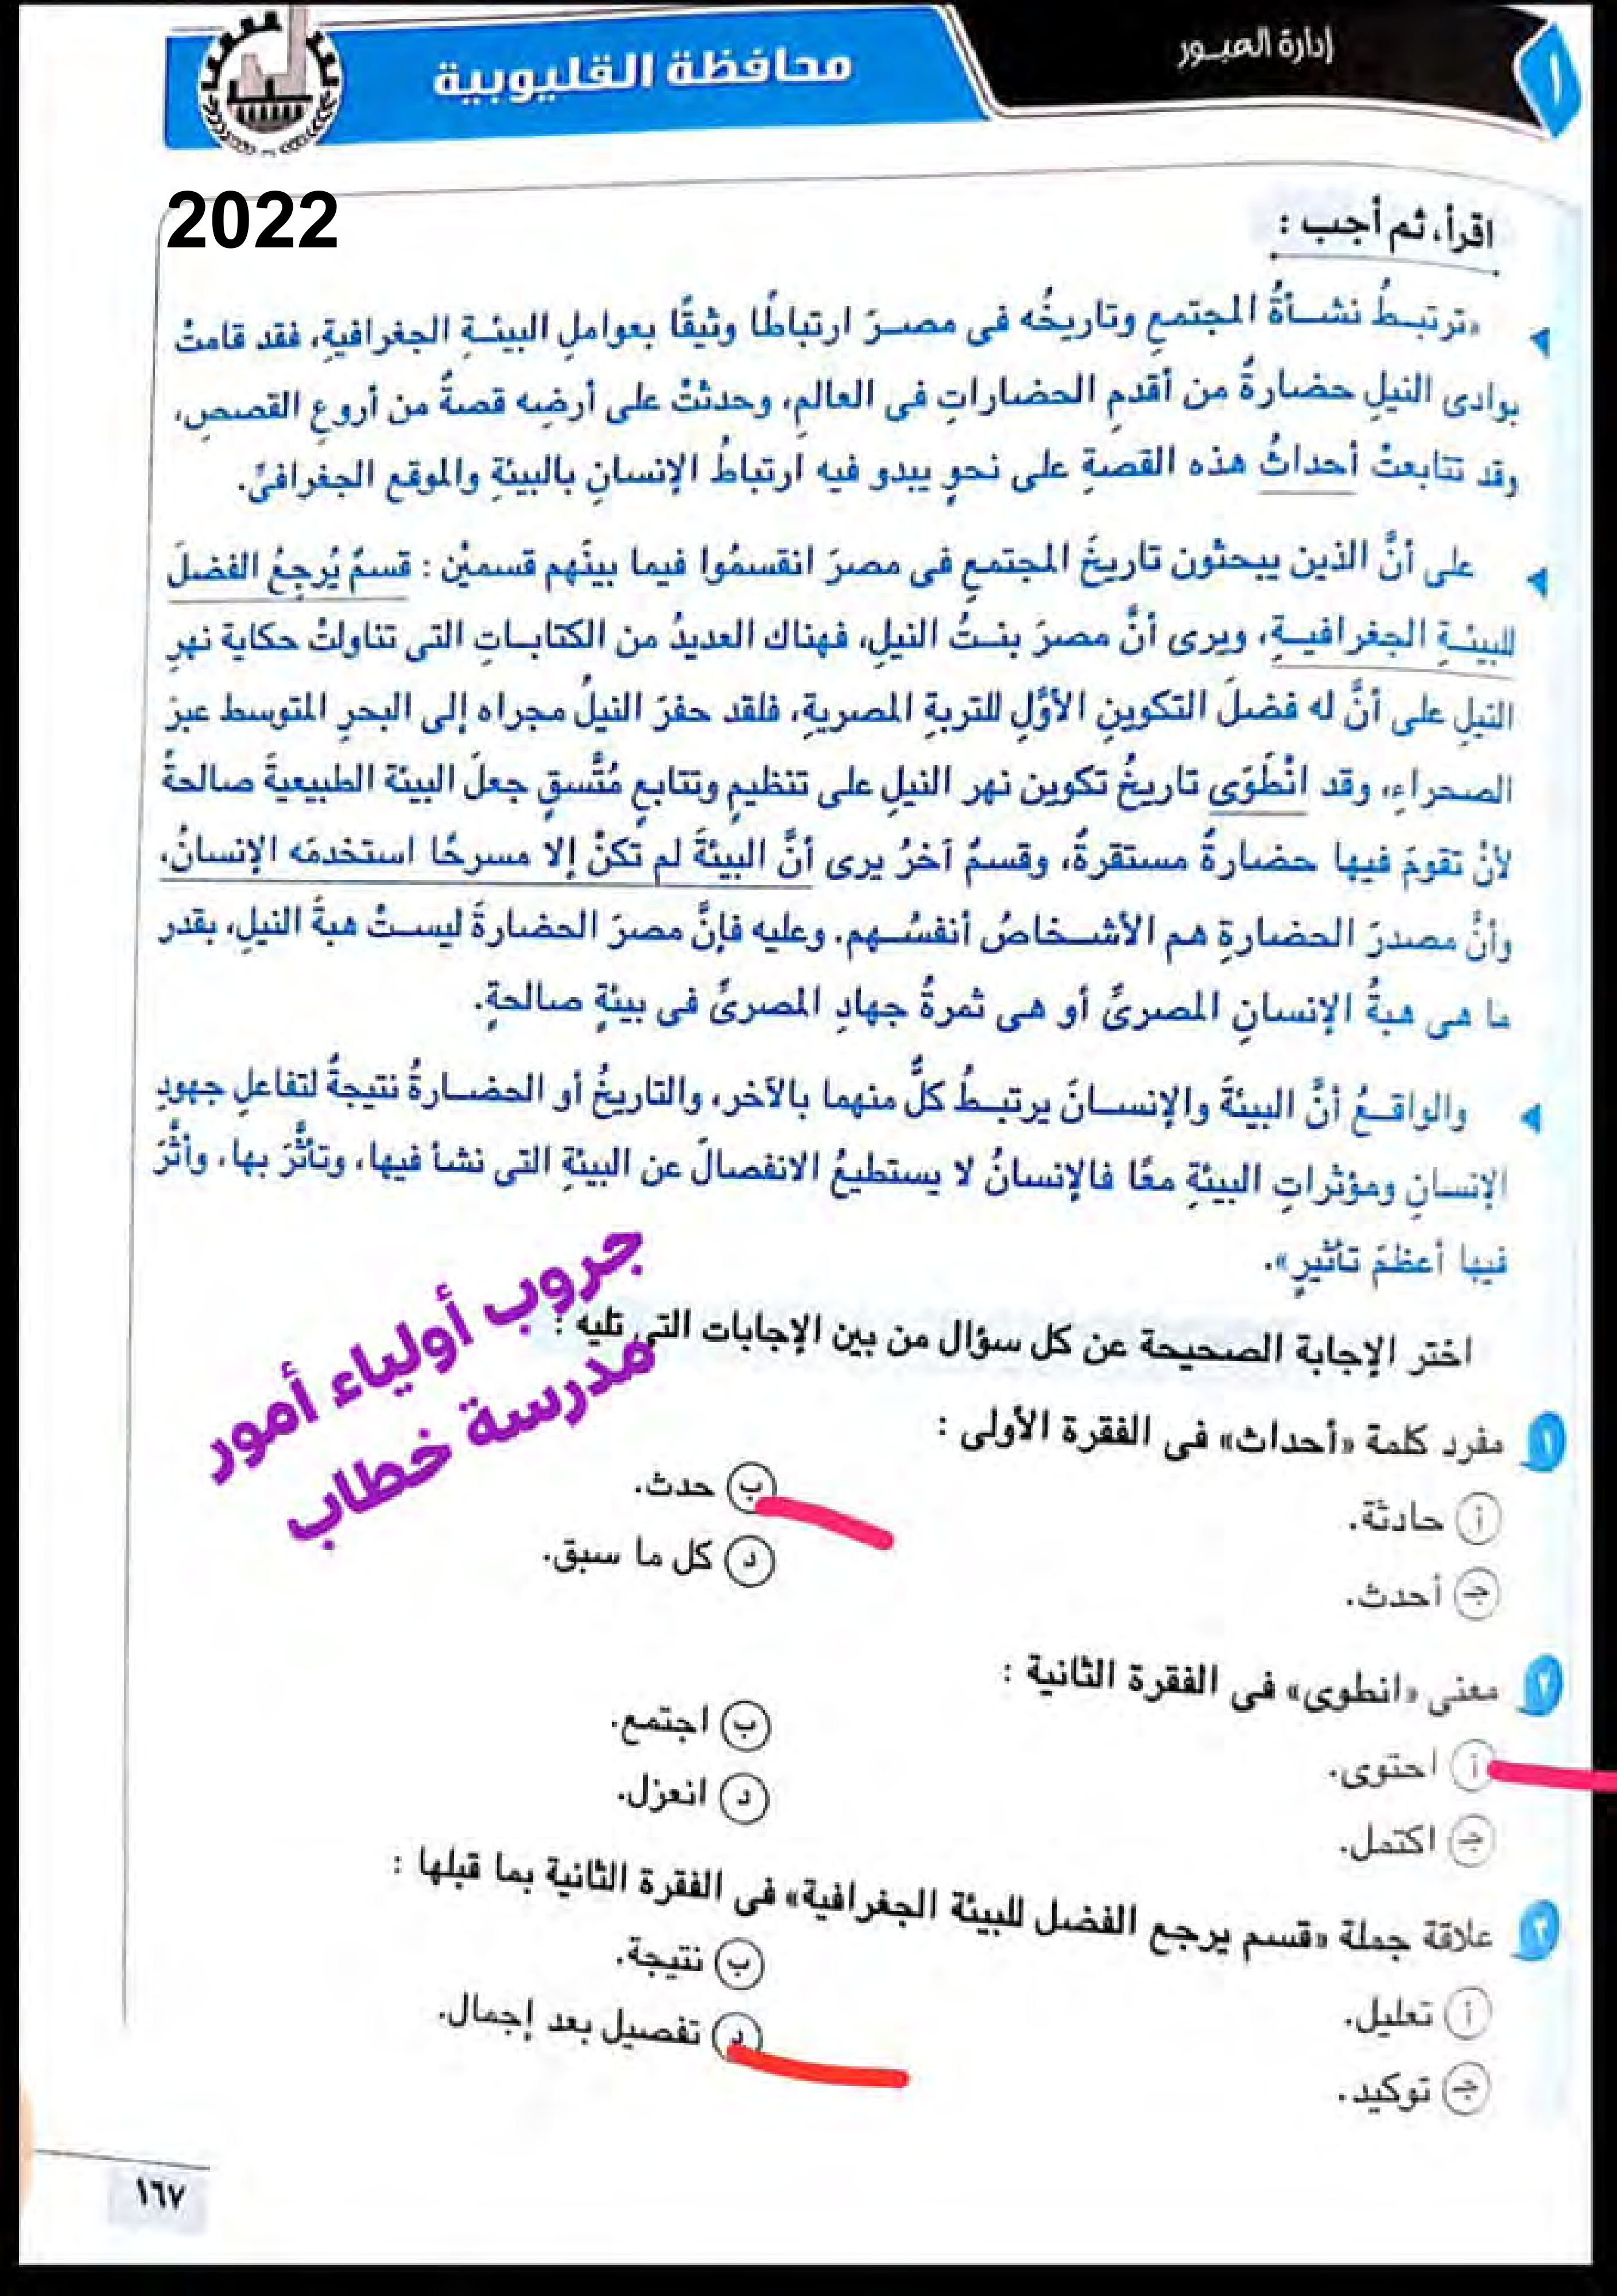 ١
إدارة العبـور
محافظة القليوبية
2022
اقرأ، ثم أجب :
«ترتبـطُ نشـأةُ المجتمعِ وتاريخُه فى مصـرَ ارتباطًا وثيقًا بعواملِ البيئـةِ الجغرافيةِ، فقد قامتْ
بوادى النيلِ حضارةٌ من أقدمِ الحضاراتِ فى العالمِ، وحدثتْ على أرضِه قصةٌ من أروعِ القصصِ،
وقد تتابعتْ أحداثُ هذه القصةِ على نحوٍ يبدو فيه ارتباطُ الإنسانِ بالبيئةِ والموقعِ الجغرافىِّ.
على أنَّ الذين يبحثون تاريخَ المجتمعِ فى مصرَ انقسمُوا فيما بينَهم قسميْن : قسمٌ يُرجِعُ الفضلَ
للبيئـةِ الجغرافيـةِ، ويرى أنَّ مصرَ بنـتُ النيلِ، فهناك العديدُ من الكتابـاتِ التى تناولتْ حكاية نهرِ
النيلِ على أنَّ له فضلَ التكوينِ الأوَّلِ للتربةِ المصريةِ، فلقد حفرَ النيلُ مجراه إلى البحرِ المتوسط عبرَ
الصحراءِ، وقد انْطَوَى تاريخُ تكوين نهر النيلِ على تنظيمٍ وتتابعٍ مُتَّسقٍ جعلَ البيئة الطبيعيةَ صالحةً
لأنْ تقومَ فيها حضارةٌ مستقرةٌ، وقسمٌ آخرُ يرى أنَّ البيئةَ لم تكنْ إلا مسرحًا استخدمَه الإنسانُ،
وأنَّ مصدرَ الحضارةِ هم الأشـخاصُ أنفسُـهم. وعليه فإنَّ مصرَ الحضارةَ ليسـتْ هبةَ النيلِ، بقدر
ما هى هبةُ الإنسانِ المصرىِّ أو هى ثمرةُ جهادِ المصرىِّ فى بيئةٍ صالحةٍ.
والواقـعُ أنَّ البيئةَ والإنسـانَ يرتبـطُ كلٌّ منهما بالآخر، والتاريخُ أو الحضـارةُ نتيجةٌ لتفاعلِ جهودِ
الإنسانِ ومؤثراتِ البيئةِ معًا فالإنسانُ لا يستطيعُ الانفصالَ عن البيئةِ التى نشأ فيها، وتأثَّرَ بها، وأثَّرَ
فيها أعظمَ تأثيرٍ».
جروب أولياء أمور
مدرسة خطاب
اختر الإجابة الصحيحة عن كل سؤال من بين الإجابات التى تليه :
١ مفرد كلمة «أحداث» فى الفقرة الأولى :
أ حادثة.
ب حدث.
جـ أحدث.
د كل ما سبق.
٢ معنى «انطوى» فى الفقرة الثانية :
أ احتوى.
ب اجتمع.
جـ اكتمل.
د انعزل.
٣ علاقة جملة «قسم يرجع الفضل للبيئة الجغرافية» فى الفقرة الثانية بما قبلها :
أ تعليل.
ب نتيجة.
جـ توكيد.
د تفصيل بعد إجمال.
١٦٧